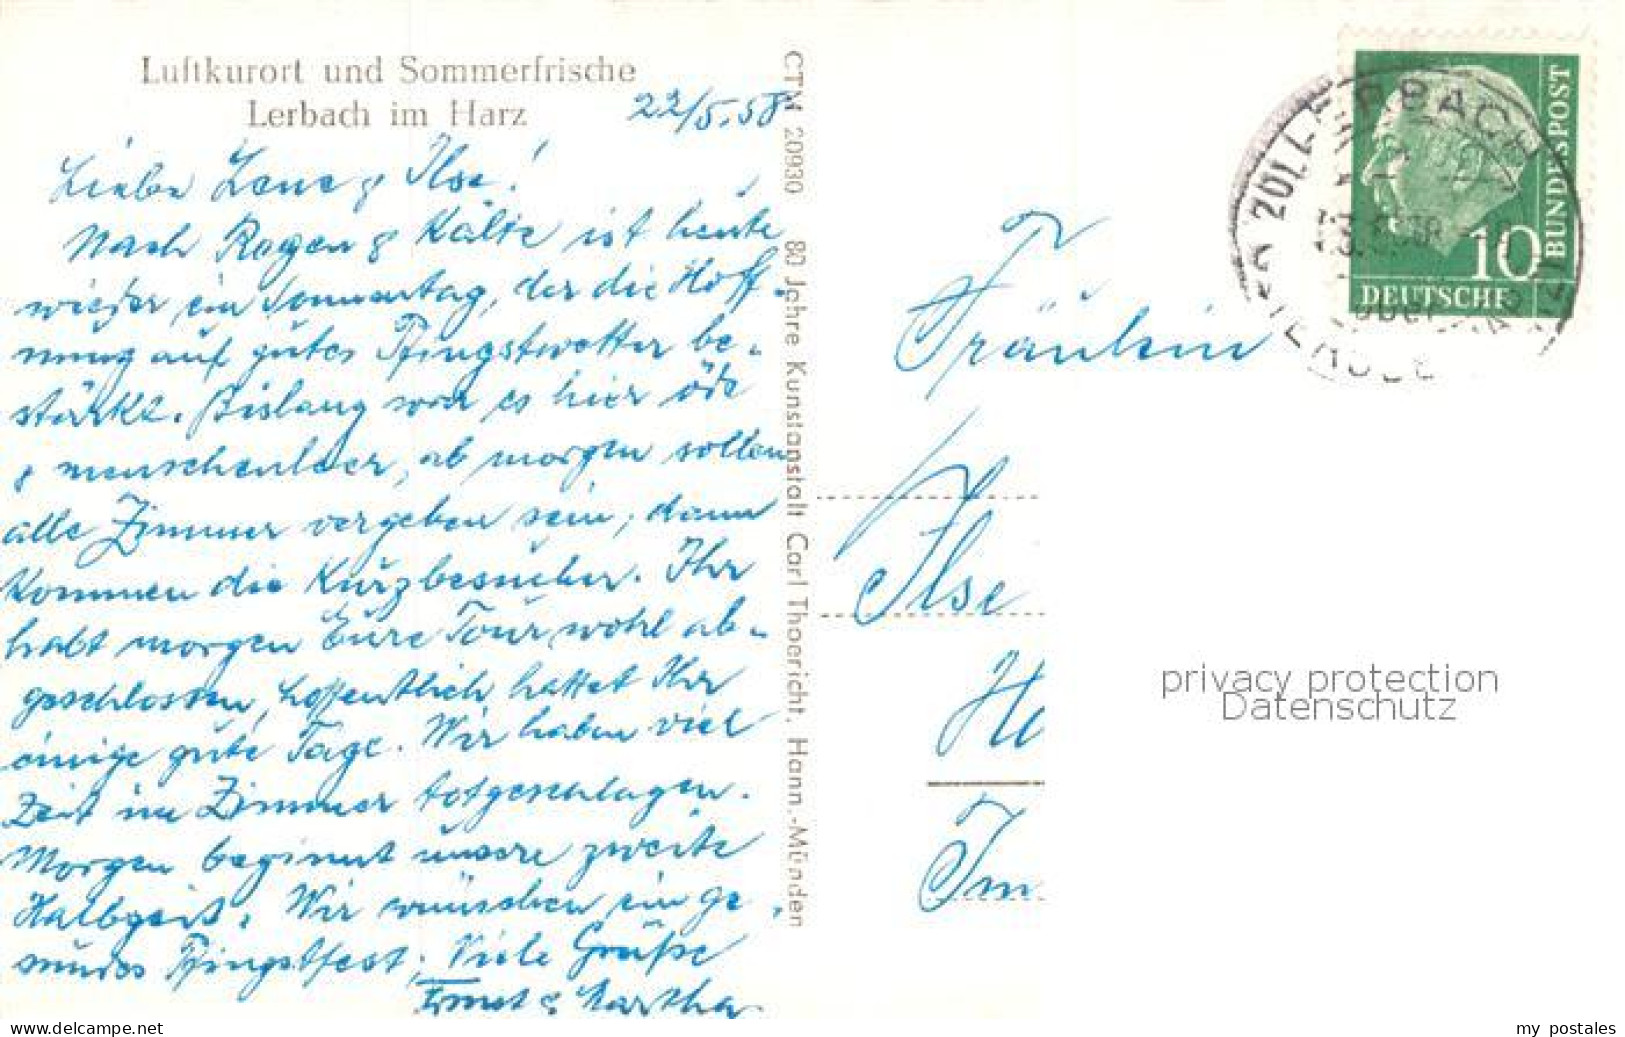 Luftkurort und Sommerfrische
Lerbach im Harz
22/5.58
Liebe Lene & Ilse!
Nach Regen & Kälte ist heute
wieder ein Sonnentag, der die Hoff-
nung auf gutes Pfingstwetter be-
stärkt. Bislang war es hier öde
& menschenleer, ab morgen sollen
alle Zimmer vergeben sein, dann
kommen die Kurzbesucher. Ihr
habt morgen Eure Tour wohl ab-
geschlossen, hoffentlich hattet Ihr
einige gute Tage. Wir haben viel
Zeit im Zimmer totgeschlagen.
Morgen beginnt unsere zweite
Halbzeit. Wir wünschen ein ge-
sundes Pfingstfest. Viele Grüße
Ernst & Martha
CTM 20930 80 Jahre Kunstanstalt Carl Thoericht, Hann.-Münden
Fräulein
Ilse
Ha
Im
DEUTSCHE
BUNDESPOST
10
LERBACH
privacy protection
Datenschutz
www.delcampe.net
my_postales